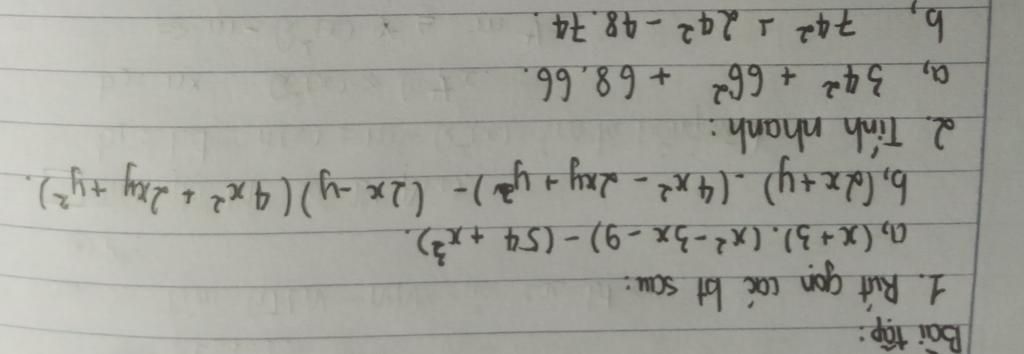 Bài tập:
1. Rút gọn các bt sau:
a, (x + 3). (x² - 3x - 9) - (54 + x³).
b, (2x + y) - (4x² - 2xy + y²) - (2x - y) (4x² + 2xy + y²).
2. Tính nhanh:
a, 34² + 66² + 68.66.
b, 74² + 24² - 48.74.